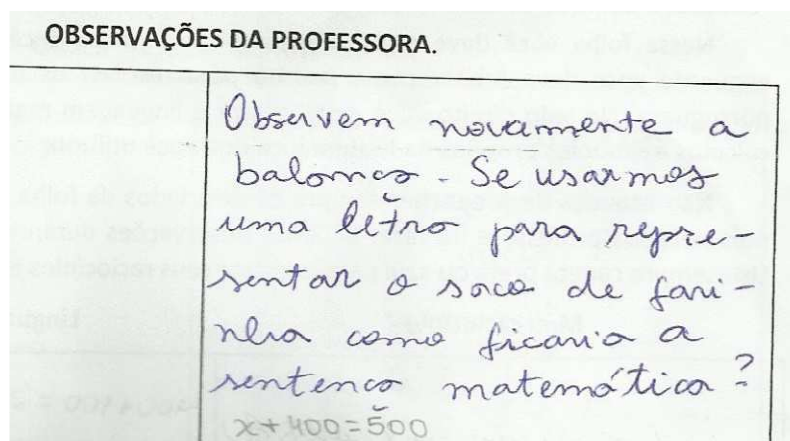 OBSERVAÇÕES DA PROFESSORA.
Observem novamente a
balança. Se usarmos
uma letra para repre-
sentar o saco de fari-
nha como ficaria a
sentença matemática?
x + 400 = 500